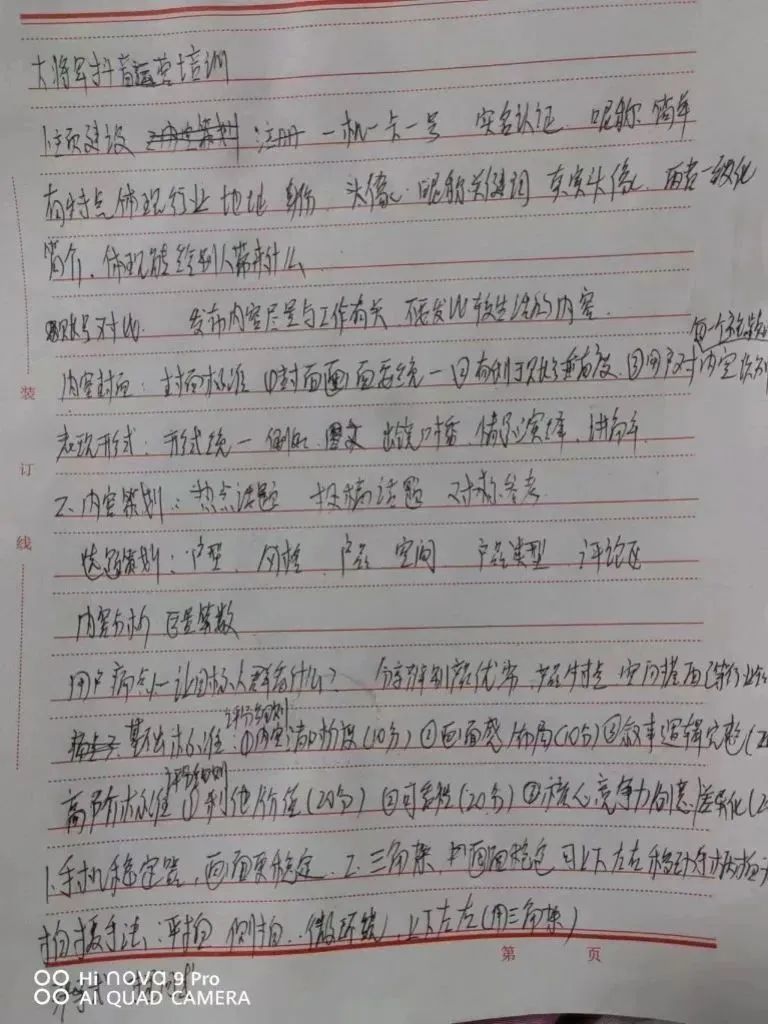 大将军抖音运营培训
1.主页建设 注册 一机一卡一号 实名认证 昵称 简单
有特点体现行业 地址 身份 头像: 昵称关键词 真实头像, 两者一致化
简介, 体现能给别人带来什么
账号对比 发布内容尽量与工作有关 不要发比较生活的内容.
每一个视频
内容封面: 封面标准 ①封面画面要统一 ②有利于账号垂直度. ③用户对内容识别
表现形式: 形式统一 例如: 图文 出镜口播, 情景演绎, 讲商单.
2.内容策划: 热点话题 话题 对标参考
选题策划: 户型, 风格 产品 空间 产品类型 评论区
内容分析 巨量算数
用户痛点—让目标人群看什么? 分享 产品优劣 产品特点 空间搭配
评分细则
基础标准: ①内容清晰度(10分) ②画面感布局(10分) ③叙事逻辑完整(2
评分细则
高阶标准 ①利他价值(20分) ②可看性(20分) ③核心竞争力创意/差异化(2
1.手机稳定器, 画面更稳定 2.三角架, 画面稳定 可上下左右移动
拍摄手法: 平拍 侧拍. 微环绕, 上下左右(用三角架)
装
订
线
第 页
Hi nova 9 Pro
AI QUAD CAMERA